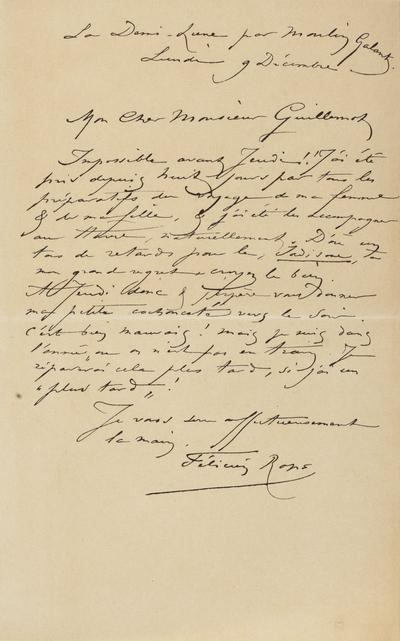 La Demi-Lune par Moulin Galant.
Lundi 9 Décembre
Mon Cher Monsieur Guillemot
Impossible avant Jeudi!! J'ai été
pris depuis huit jours par tous les
préparatifs du voyage de ma femme
& de ma fille, & j'ai été les accompagner
au Havre, naturellement. D'où un
tas de retards pour le, à
mon grand regret croyez le bien.
A Jeudi donc & j'espère vous donner
ma petite vers le soir.
c'est bien mauvais! mais je suis dans
l'ennui, on n'est pas en train. Je
réparerai cela plus tard, si j'ai un
« plus tard »!
Je vous serre affectueusement
la main,
Félicien Rops